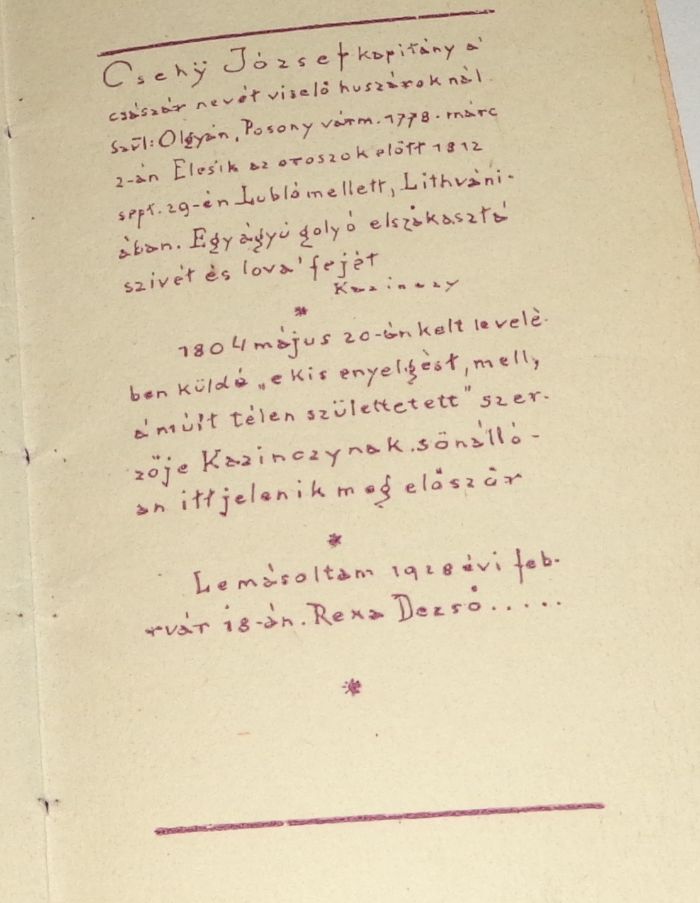 Csehÿ József kapitány a'
császár nevét viselő huszároknál.
Szül: Olgyán, Posony várm. 1778. márc
2-án Elesik az oroszok előtt 1812
sept. 29-én Lubló mellett, Lithváni-
ában. Egy ágyú golyó elszakasztá
szivét és lova' fejét
Kazinczy
*
1804 május 20-án kelt levelé-
ben küldé „e kis enyelgést, melly
a múlt télen születtetett" szer-
zője Kazinczynak. sönálló-
an itt jelenik meg először
*
Lemásoltam 1928 évi feb-
rvár 18-án. Rexa Dezső.....
*